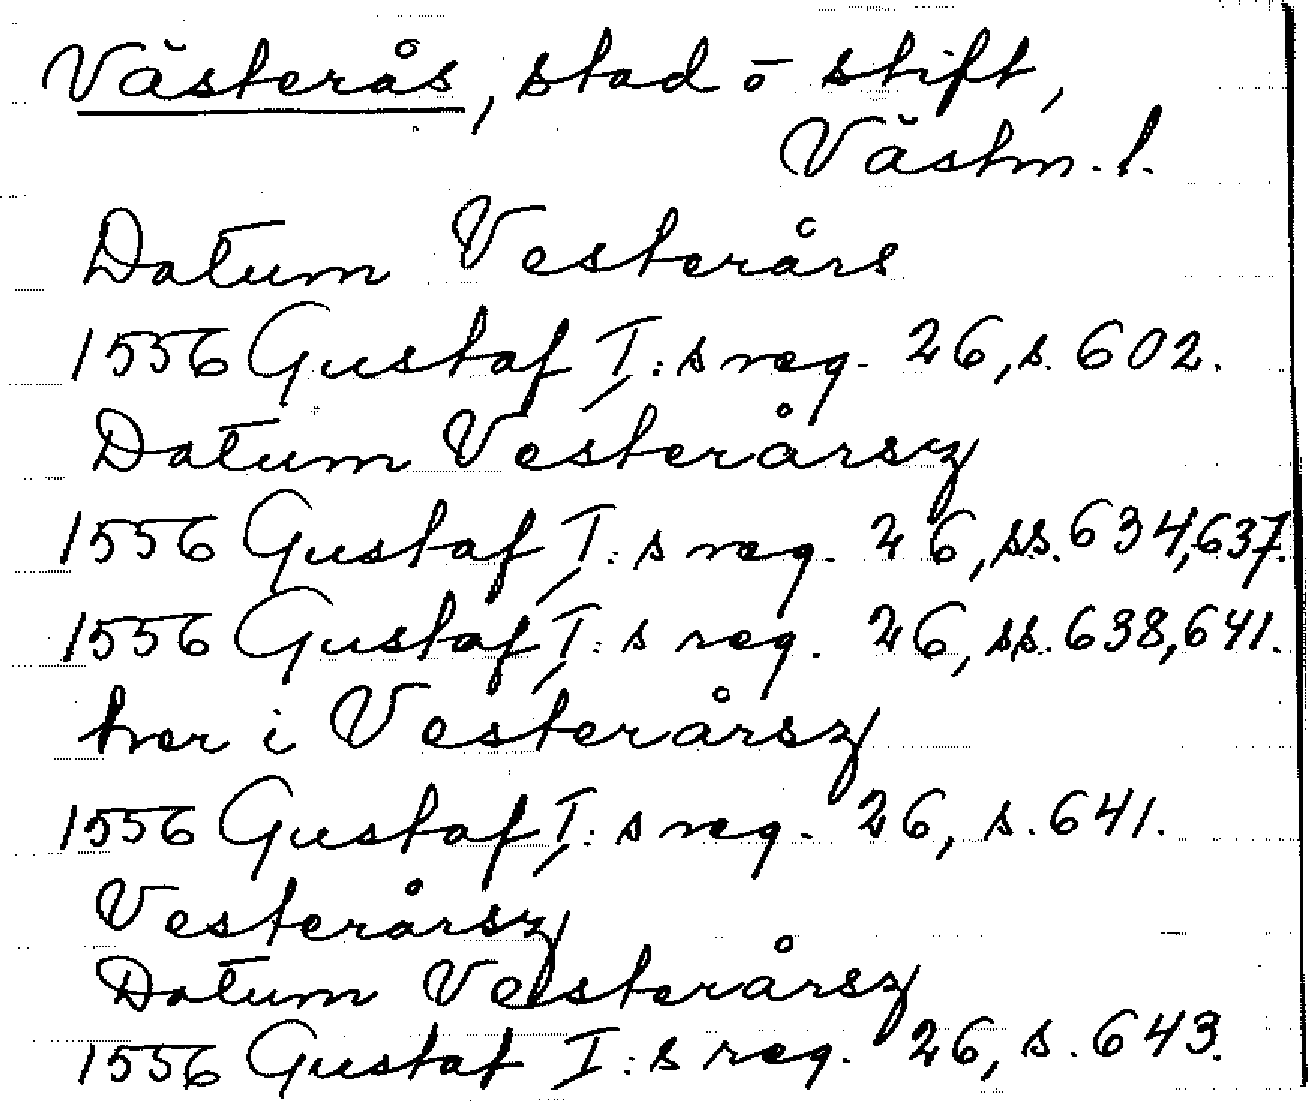 Västerås, stad o stift,
Västm. l.
Datum Vesterårs
1556 Gustaf I:s reg. 26, s. 602.
Datum Vesterårsz
1556 Gustaf I:s reg. 26, ss. 634, 637.
1556 Gustaf I:s reg. 26, ss. 638, 641.
hver i Vesterårsz
1556 Gustaf I:s reg. 26, s. 641.
Vesterårsz
Datum Vesterårsz
1556 Gustaf I:s reg. 26, s. 643.